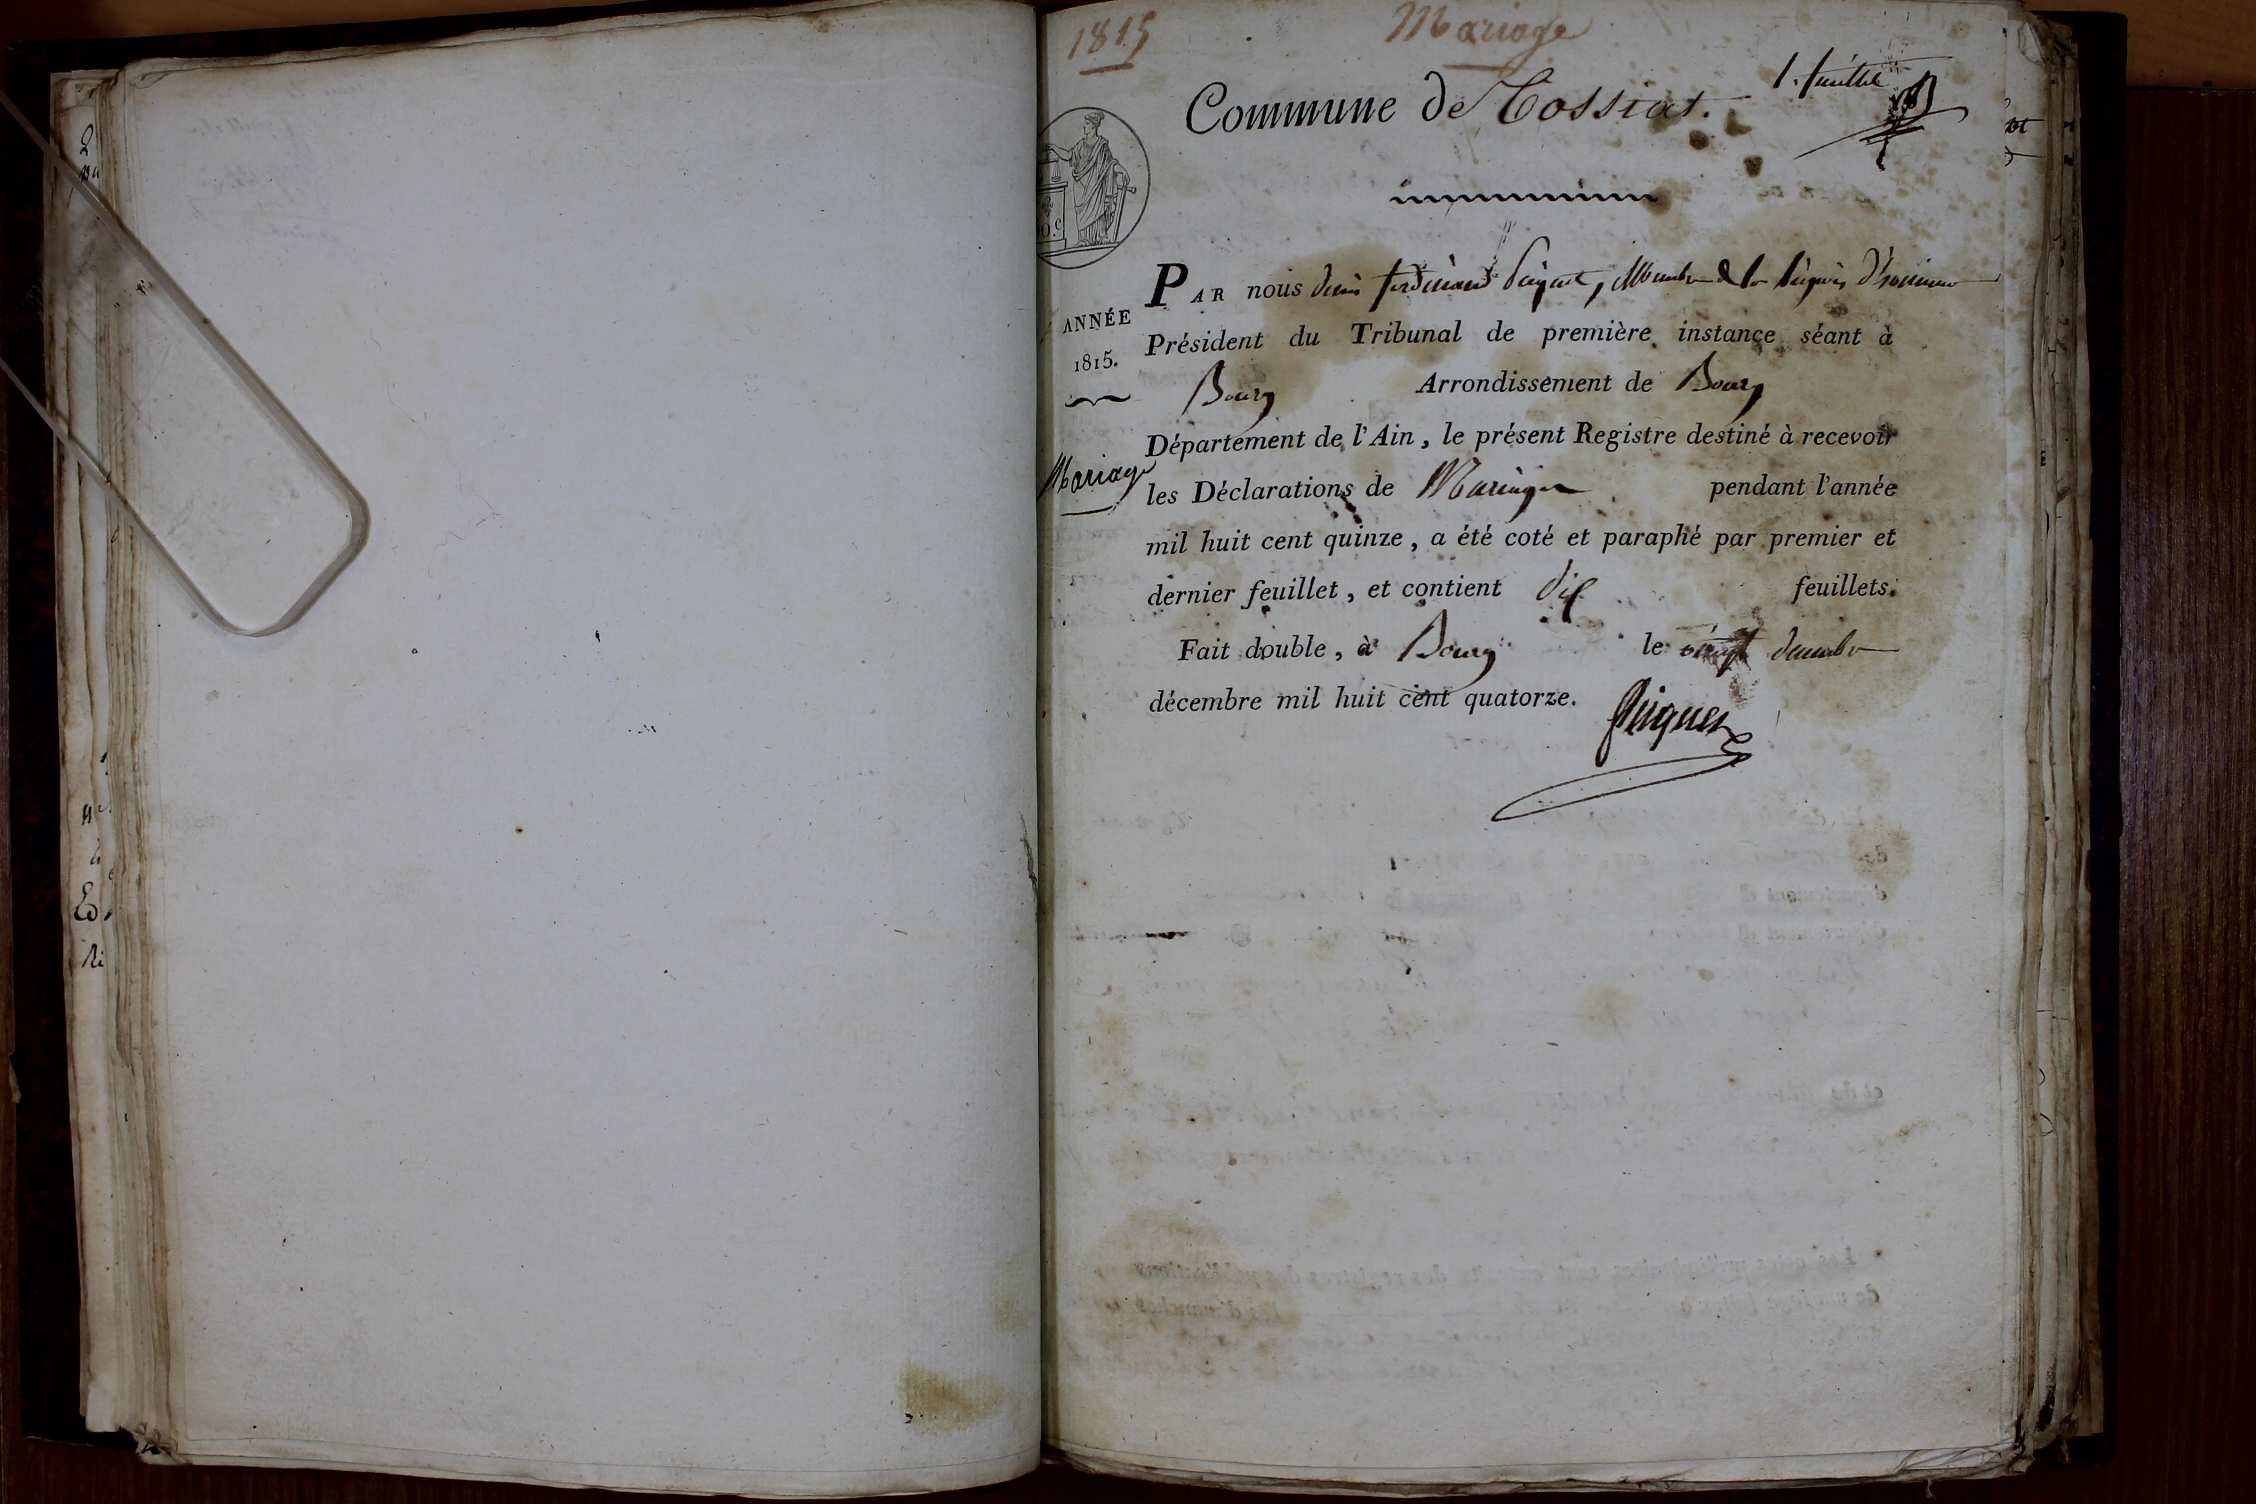 1815
Mariage
1. feuillet
Commune de Tossiat.
PAR nous Denis ferdinand Piquet, Membre de la légion d'honneur
ANNÉE
1815.
Président du Tribunal de première instance séant à
Bourg Arrondissement de Bourg
Département de l'Ain, le présent Registre destiné à recevoir
Mariage
les Déclarations de Mariages pendant l'année
mil huit cent quinze, a été coté et paraphé par premier et
dernier feuillet, et contient dix feuillets.
Fait double, à Bourg le vingt decembre
décembre mil huit cent quatorze.